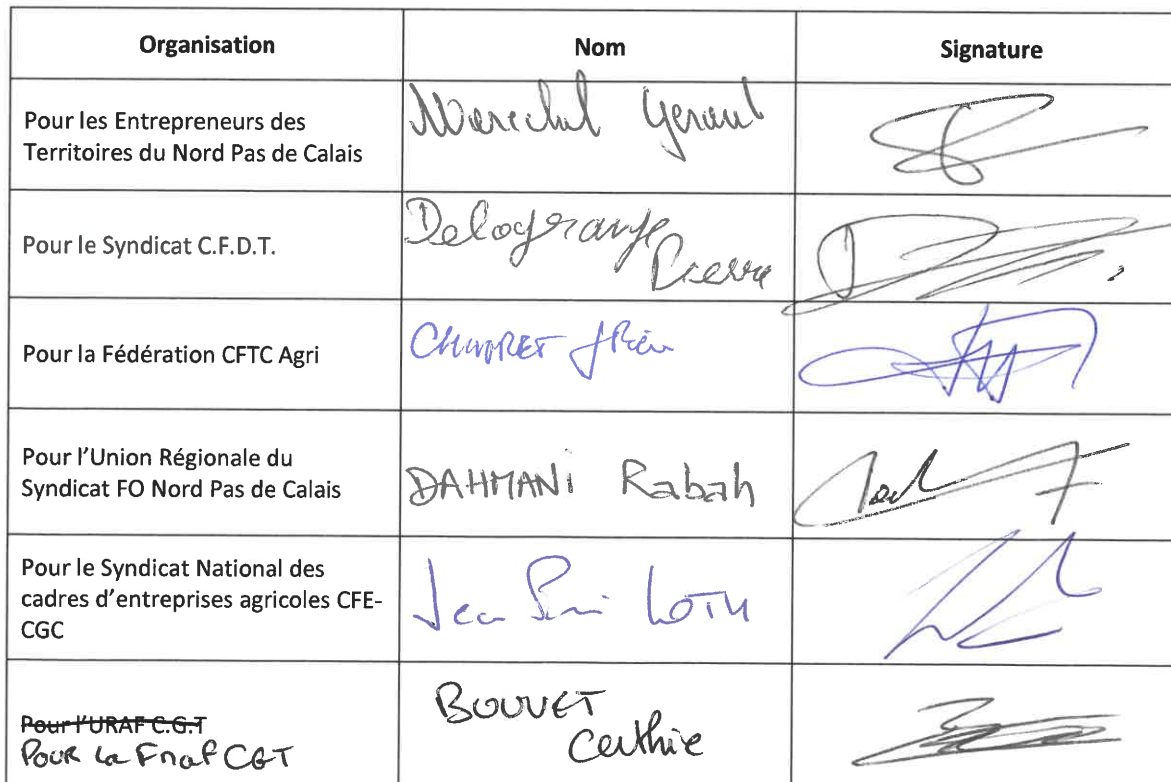 Organisation
Nom
Signature
Pour les Entrepreneurs des
Territoires du Nord Pas de Calais
Marechal
Pour le Syndicat C.F.D.T.
Delagrange
Pierre
Pour la Fédération CFTC Agri
Pour l'Union Régionale du
Syndicat FO Nord Pas de Calais
DAHMANi Rabah
Pour le Syndicat National des
cadres d'entreprises agricoles CFE-
CGC
Jean LOTH
Pour l'URAF C.G.T
POUR La Fnaf CGT
BOUVET